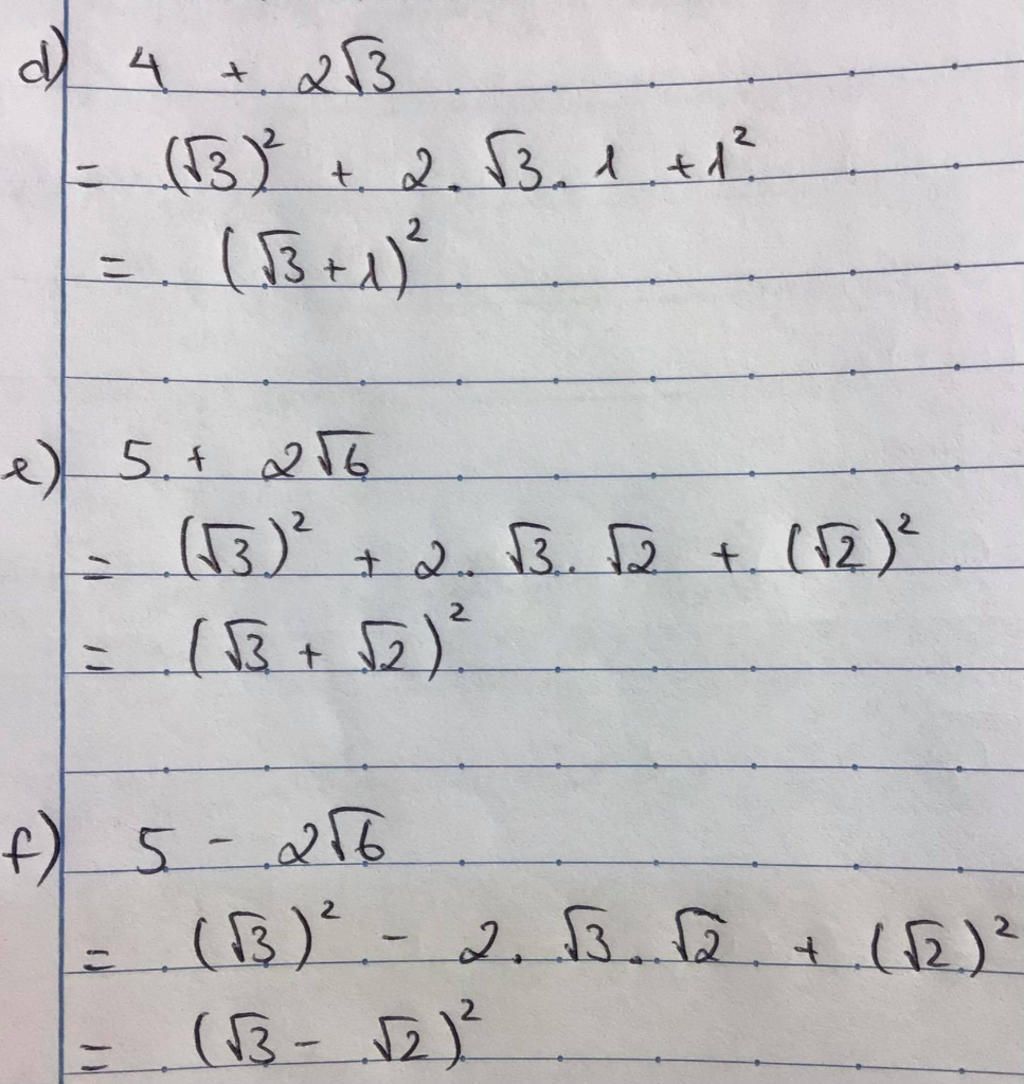 d) 4 + 2√3
= (√3)² + 2. √3. 1 + 1²
= (√3 + 1)²
e) 5 + 2√6
= (√3)² + 2. √3. √2 + (√2)²
= (√3 + √2)²
f) 5 - 2√6
= (√3)² - 2. √3. √2 + (√2)²
= (√3 - √2)²